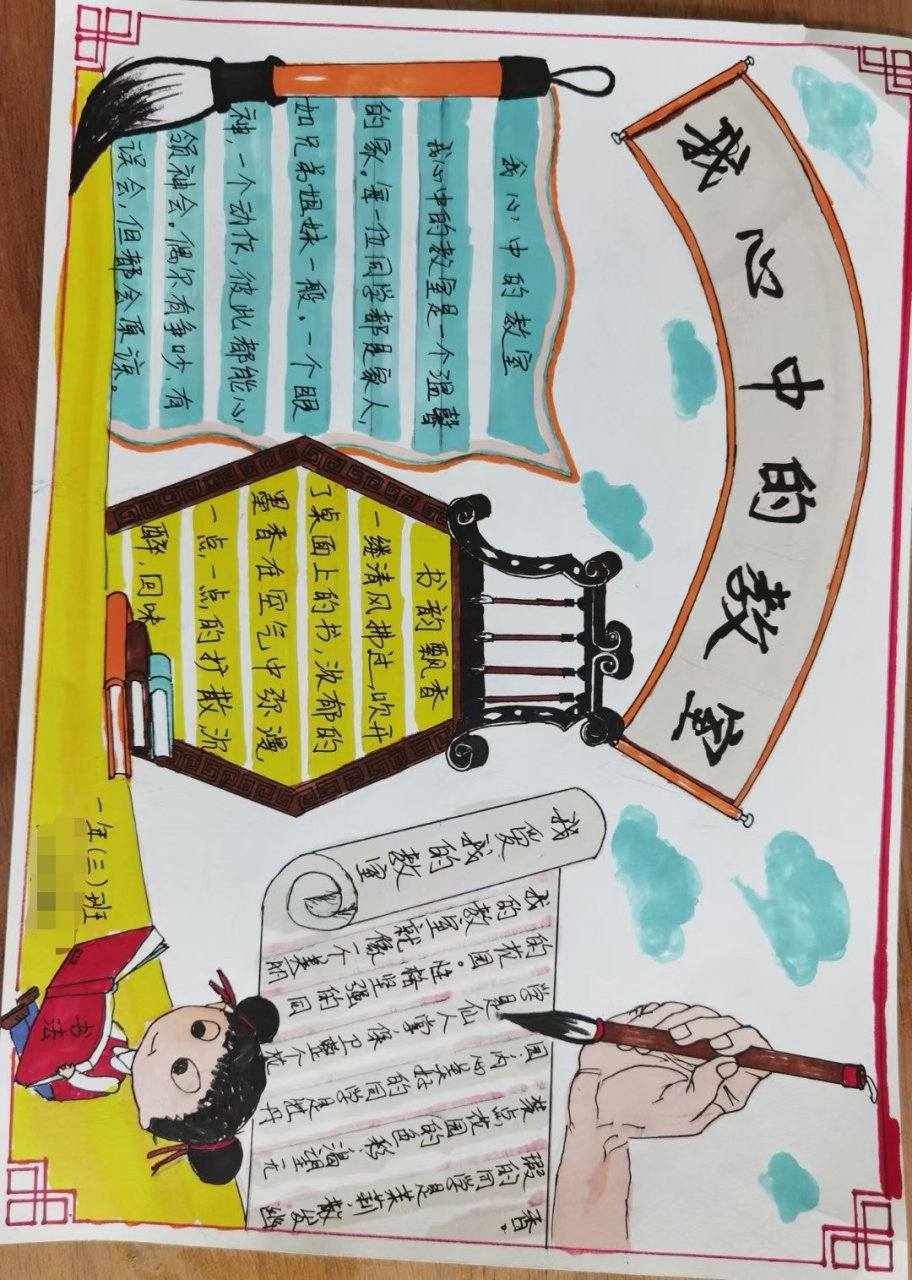 我心中的教室
我心中的教室
我心中的教室是一个温馨
的家。每一位同学都是家人，
如兄弟姐妹一般。一个眼
神，一个动作，彼此都能心
领神会。偶尔有争吵、有
误会，但都会原谅。
书韵飘香
一缕清风拂过，吹开
了桌面上的书，浓郁的
墨香在空气中弥漫
一点一点的扩散，沉
醉，回味
我爱我的教室
我的教室就像一个美丽
的花园。性格坚强的同
学是仙人掌保卫整个花
园内心美好的同学是牡丹
装点花园的色彩
的同学是茉莉散发幽
香。
一年(三)班
书法